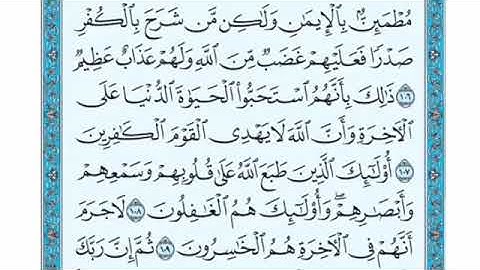 مُطْمَئِنٌّۢ بِٱلْإِيمَٰنِ وَلَٰكِن مَّن شَرَحَ بِٱلْكُفْرِ
صَدْرًا فَعَلَيْهِمْ غَضَبٌ مِّنَ ٱللَّهِ وَلَهُمْ عَذَابٌ عَظِيمٌ
١٠٦ ذَٰلِكَ بِأَنَّهُمُ ٱسْتَحَبُّوا۟ ٱلْحَيَوٰةَ ٱلدُّنْيَا عَلَى
ٱلْءَاخِرَةِ وَأَنَّ ٱللَّهَ لَا يَهْدِى ٱلْقَوْمَ ٱلْكَٰفِرِينَ
١٠٧ أُو۟لَٰٓئِكَ ٱلَّذِينَ طَبَعَ ٱللَّهُ عَلَىٰ قُلُوبِهِمْ وَسَمْعِهِمْ
وَأَبْصَٰرِهِمْ ۖ وَأُو۟لَٰٓئِكَ هُمُ ٱلْغَٰفِلُونَ ١٠٨ لَا جَرَمَ
أَنَّهُمْ فِى ٱلْءَاخِرَةِ هُمُ ٱلْخَٰسِرُونَ ١٠٩ ثُمَّ إِنَّ رَبَّكَ